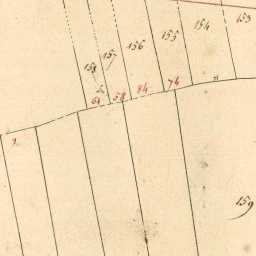 153
154
155
156
157
158
74
84
58
61
159